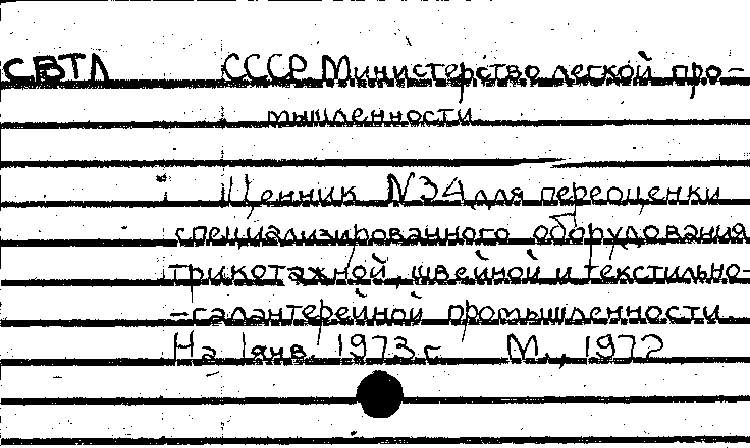 СВТЛ СССР Министерство легкой про-
мышленности
Ценник N34 для переоценки
специализированного оборудования
трикотажной, швейной и текстильно-
-галантерейной промышленности.
На 1 янв. 1973 г М., 1972